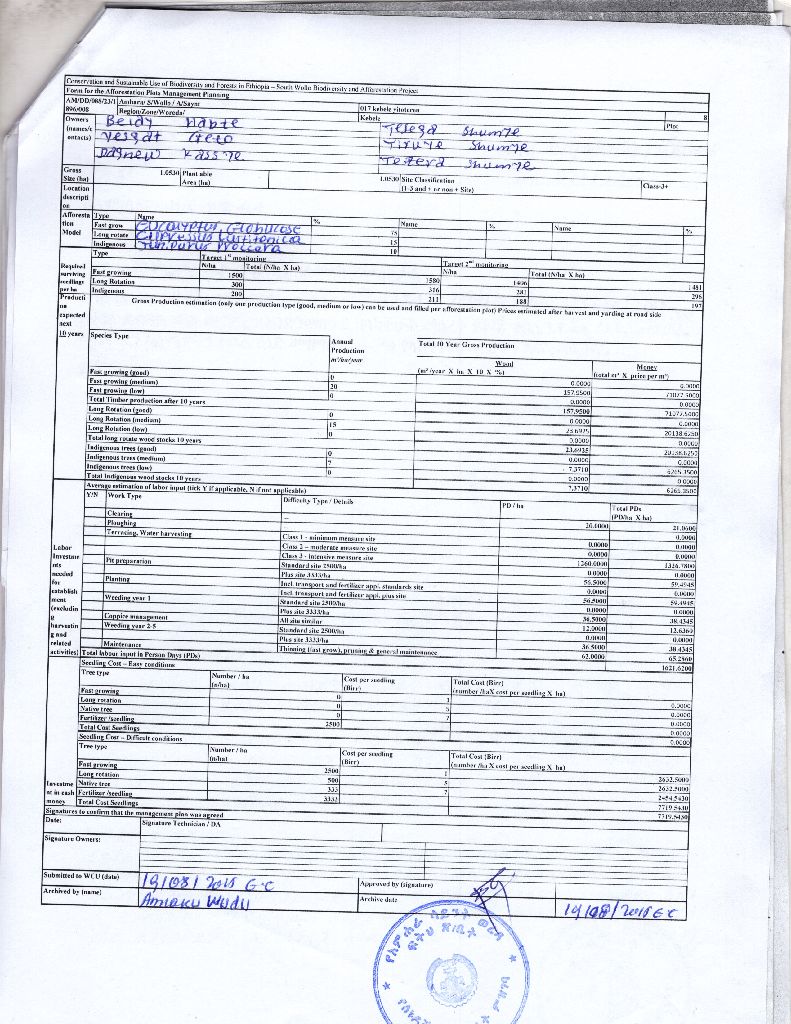 Conservation and Sustainable Use of Biodiversity and Forests in Ethiopia – South Wollo Biodiversity and Afforestation Project
Form for the Afforestation Plots Management Planning
AM/DD/088/23/1 Amhara/ S/Wollo / A/Saynt 017 kebele yitoteren 8
896/008 Region/Zone/Woreda/ Kebele Plot
Owners (names/contacts)
Beidy Habte Telega Shumye
Yesgat Geto Yiruye Shumye
Dagnew Kassye Tefera Shumye
Gross Size (ha) 1.0530 Plant able Area (ha) 1.0530 Site Classification (1-3 and + or non + Site) Class-3+
Location description
Afforestation Model
Type Name % Name % Name %
Fast grow Eucalyptus, Globulose 75
Long rotate Cupressus Lusitanica 15
Indigenous Juniparus Proccara 10
Required surviving seedlings per ha
Type Target 1st monitoring Target 2nd monitoring
N/ha Total (N/ha X ha) N/ha Total (N/ha X ha)
Fast growing 1500 1580 1406 1481
Long Rotation 300 316 281 296
Indigenous 200 211 188 197
Production expected next 10 years
Gross Production estimation (only one production type (good, medium or low) can be used and filled per afforestation plot) Prices estimated after harvest and yarding at road side
Species Type Annual Production m³/ha/year Total 10 Year Gross Production
Wood (m³/year X ha X 10 X %) Money (total m³ X price per m³)
Fast growing (good) 0 0.0000 0.0000
Fast growing (medium) 20 157.9500 71077.5000
Fast growing (low) 0 0.0000 0.0000
Total Timber production after 10 years 157.9500 71077.5000
Long Rotation (good) 0 0.0000 0.0000
Long Rotation (medium) 15 23.6925 20138.6250
Long Rotation (low) 0 0.0000 0.0000
Total long rotate wood stocks 10 years 23.6925 20138.6250
Indigenous trees (good) 0 0.0000 0.0000
Indigenous trees (medium) 7 7.3710 6265.3500
Indigenous trees (low) 0 0.0000 0.0000
Total Indigenous wood stocks 10 years 7.3710 6265.3500
Labor Investments needed for establishment (excluding harvesting and related activities)
Average estimation of labor input (tick Y if applicable, N if not applicable)
Y/N Work Type Difficulty Type / Details PD / ha Total PDs (PD/ha X ha)
Clearing -- 20.0000 21.0600
Ploughing 0.0000
Terracing, Water harvesting Class 1 - minimum measure site 0.0000 0.0000
Class 2 – moderate measure site 0.0000 0.0000
Class 3 - Intensive measure site 1260.0000 1326.7800
Pit preparation Standard site 2500/ha 0.0000 0.0000
Plus site 3333/ha 56.5000 59.4945
Planting Incl. transport and fertilizer appl. standards site 0.0000 0.0000
Incl. transport and fertilizer appl. plus site 56.5000 59.4945
Weeding year 1 Standard site 2500/ha 0.0000 0.0000
Plus site 3333/ha 36.5000 38.4345
Coppice management All site similar 12.0000 12.6360
Weeding year 2-5 Standard site 2500/ha 0.0000 0.0000
Plus site 3333/ha 36.5000 38.4345
Maintenance Thinning (fast grow), pruning & general maintenance 62.0000 65.2860
Total labour input in Person Days (PDs) 1621.6200
Investment in cash money
Seedling Cost – Easy conditions
Tree type Number / ha (n/ha) Cost per seedling (Birr) Total Cost (Birr) (number /haX cost per seedling X ha)
Fast growing 0 1 0.0000
Long rotation 0 5 0.0000
Native tree 0 7 0.0000
Fertilizer /seedling 2500 0.0000
Total Cost Seedlings 0.0000
Seedling Cost – Difficult conditions
Tree type Number / ha (n/ha) Cost per seedling (Birr) Total Cost (Birr) (number /ha X cost per seedling X ha)
Fast growing 2500 1 2632.5000
Long rotation 500 5 2632.5000
Native tree 333 7 2454.5430
Fertilizer /seedling 3333 7719.5430
Total Cost Seedlings 7719.5430
Signatures to confirm that the management plan was agreed
Date: Signature Technician / DA
Signature Owners:
Submitted to WCU (date) 19/08/2015 G.C Approved by (signature)
Archived by (name) Amoku Wudu Archive date 19/08/2015 G.C